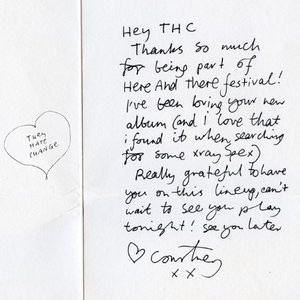 They
HATE
CHANGE
Hey THC
Thanks so much
for being part of
Here And there festival!
I've been loving your new
album (and I love that
i found it when searching
for some xray spex)
Really grateful to have
you on this lineup, can't
wait to see you play
tonight! see you later
♡ courtney
x x